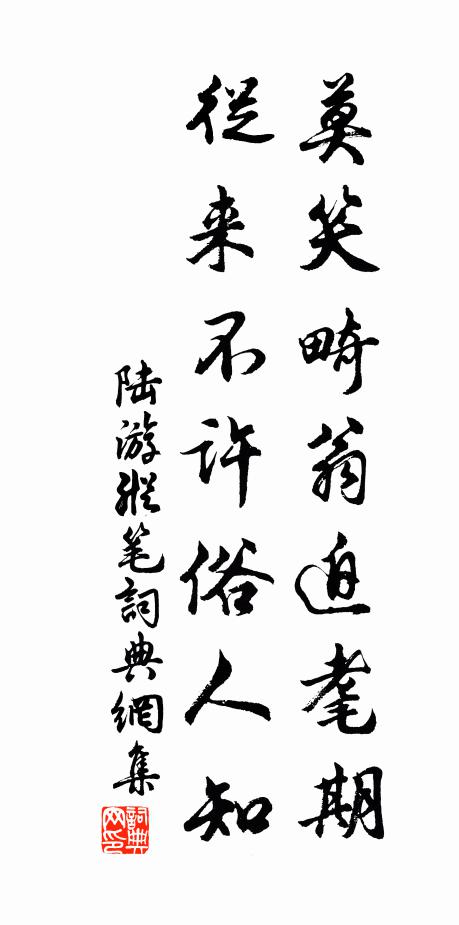 莫笑畸翁迫耄期
從来不許俗人知
陆游縱笔詞典網集
詞典网印